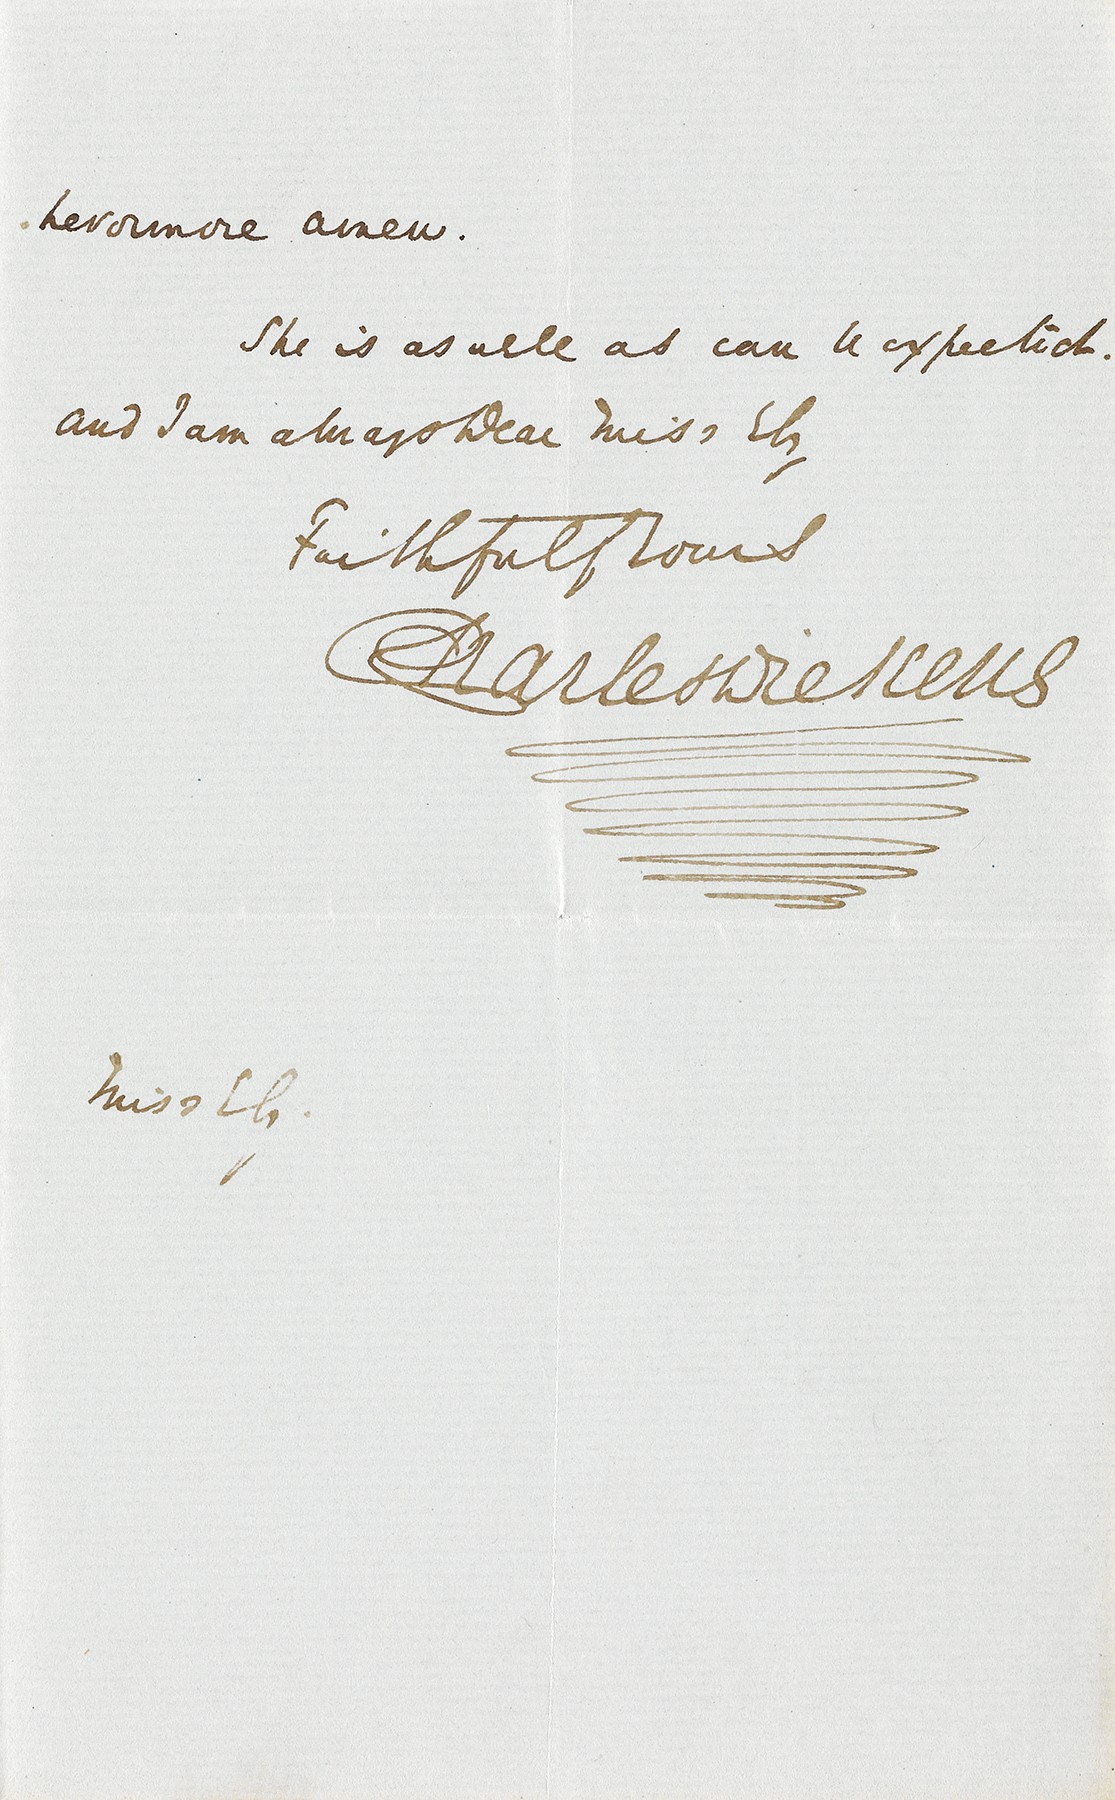 hevermore amen.
She is as well as can be expected.
And I am always Dear Miss Ely
Faithfully Yours
Charles Dickens
Miss Ely.